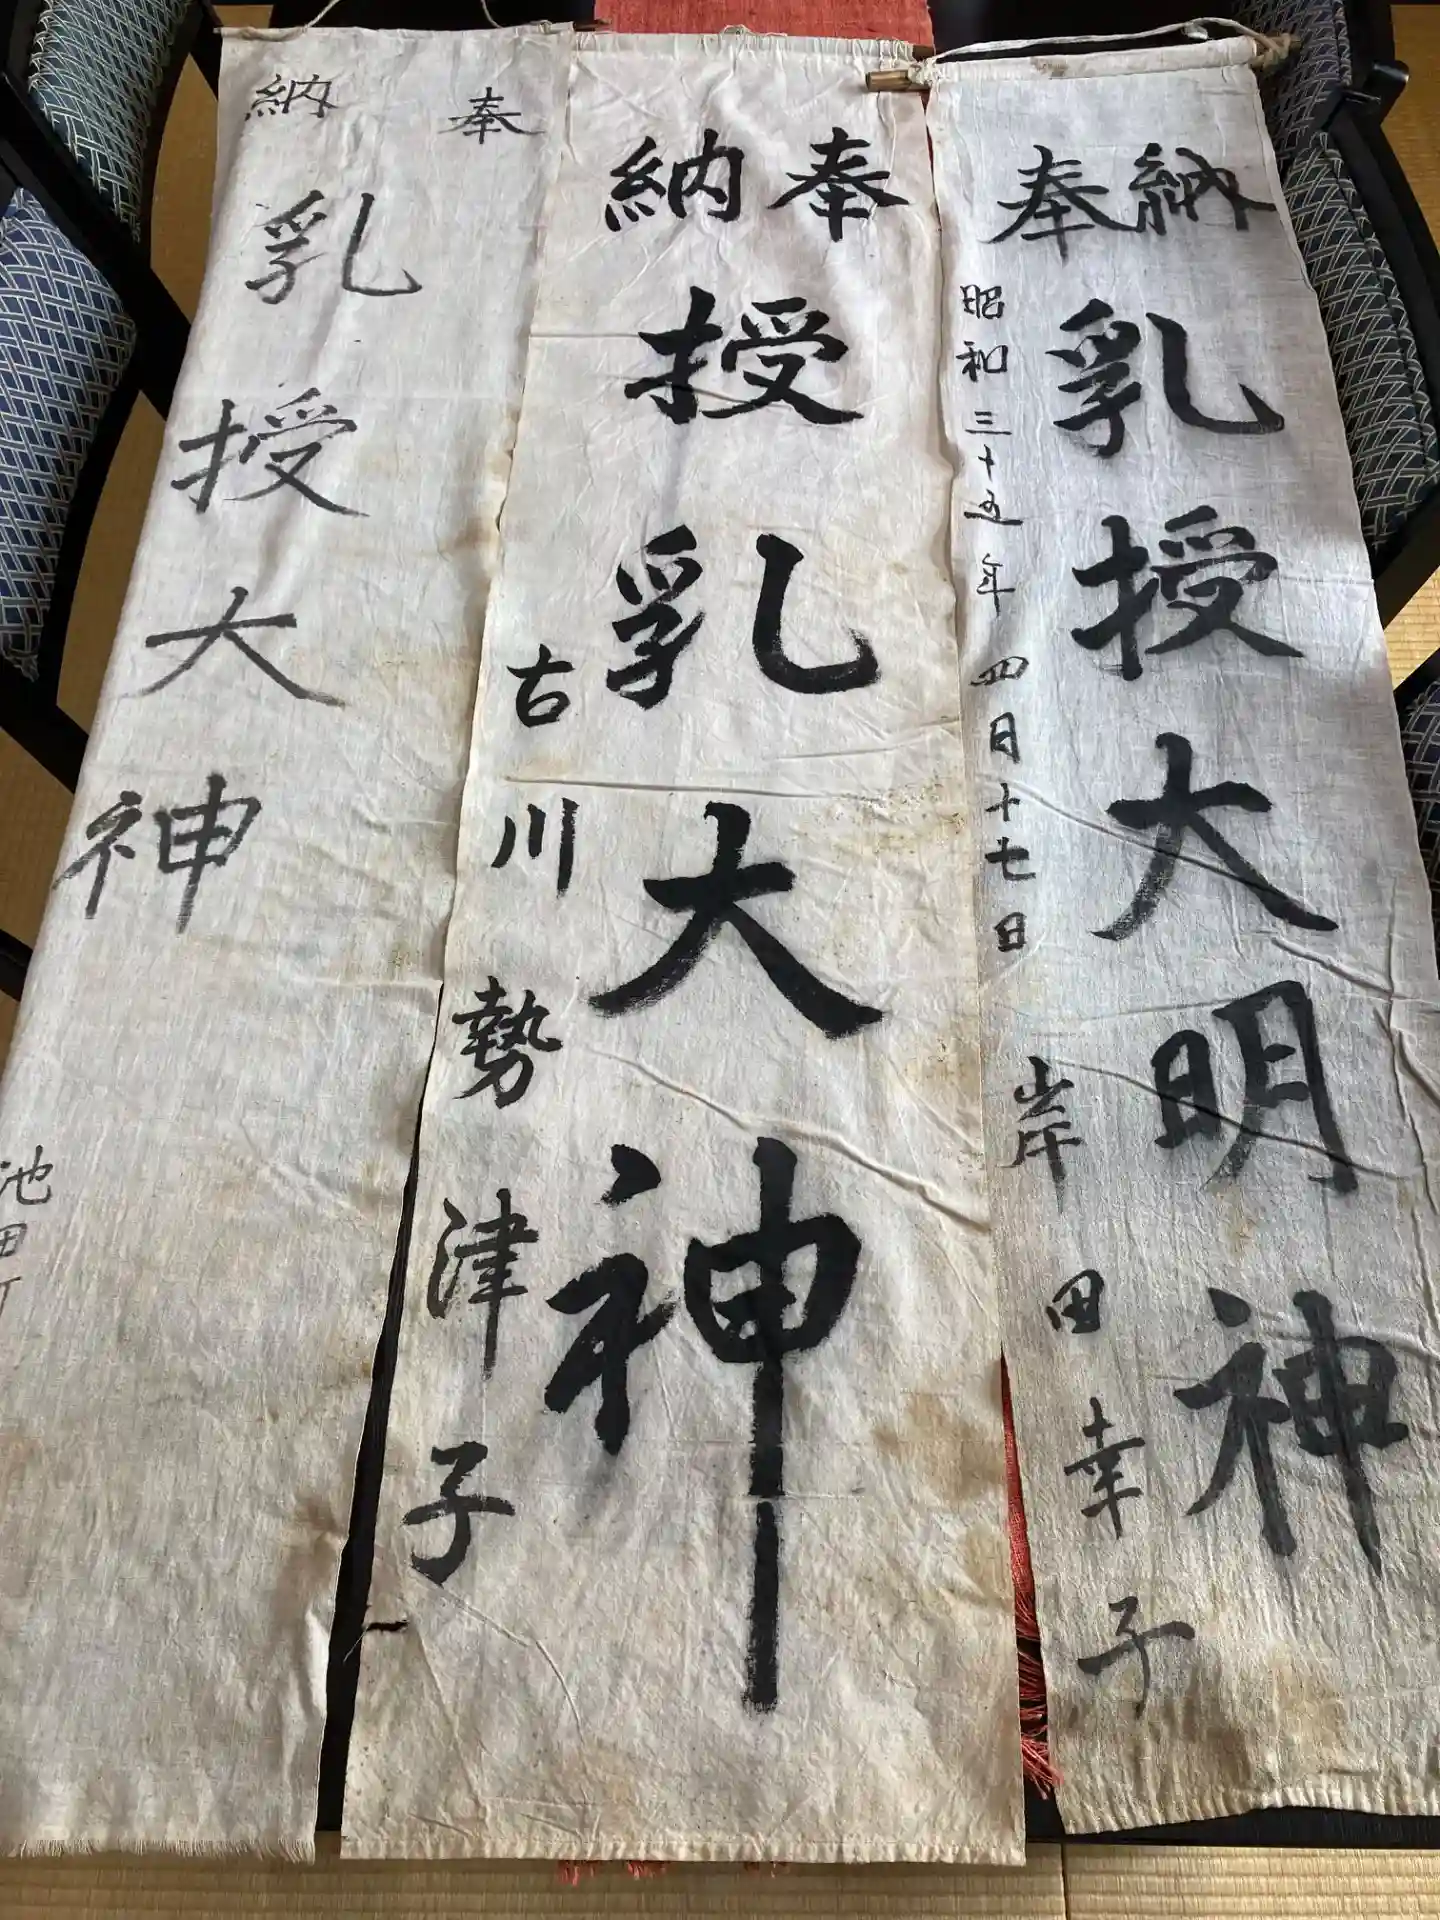 納奉
乳授大明神
昭和三十五年四月十七日
岸田幸子
奉納
授乳大神
古川勢津子
奉納
乳授大神
池田町